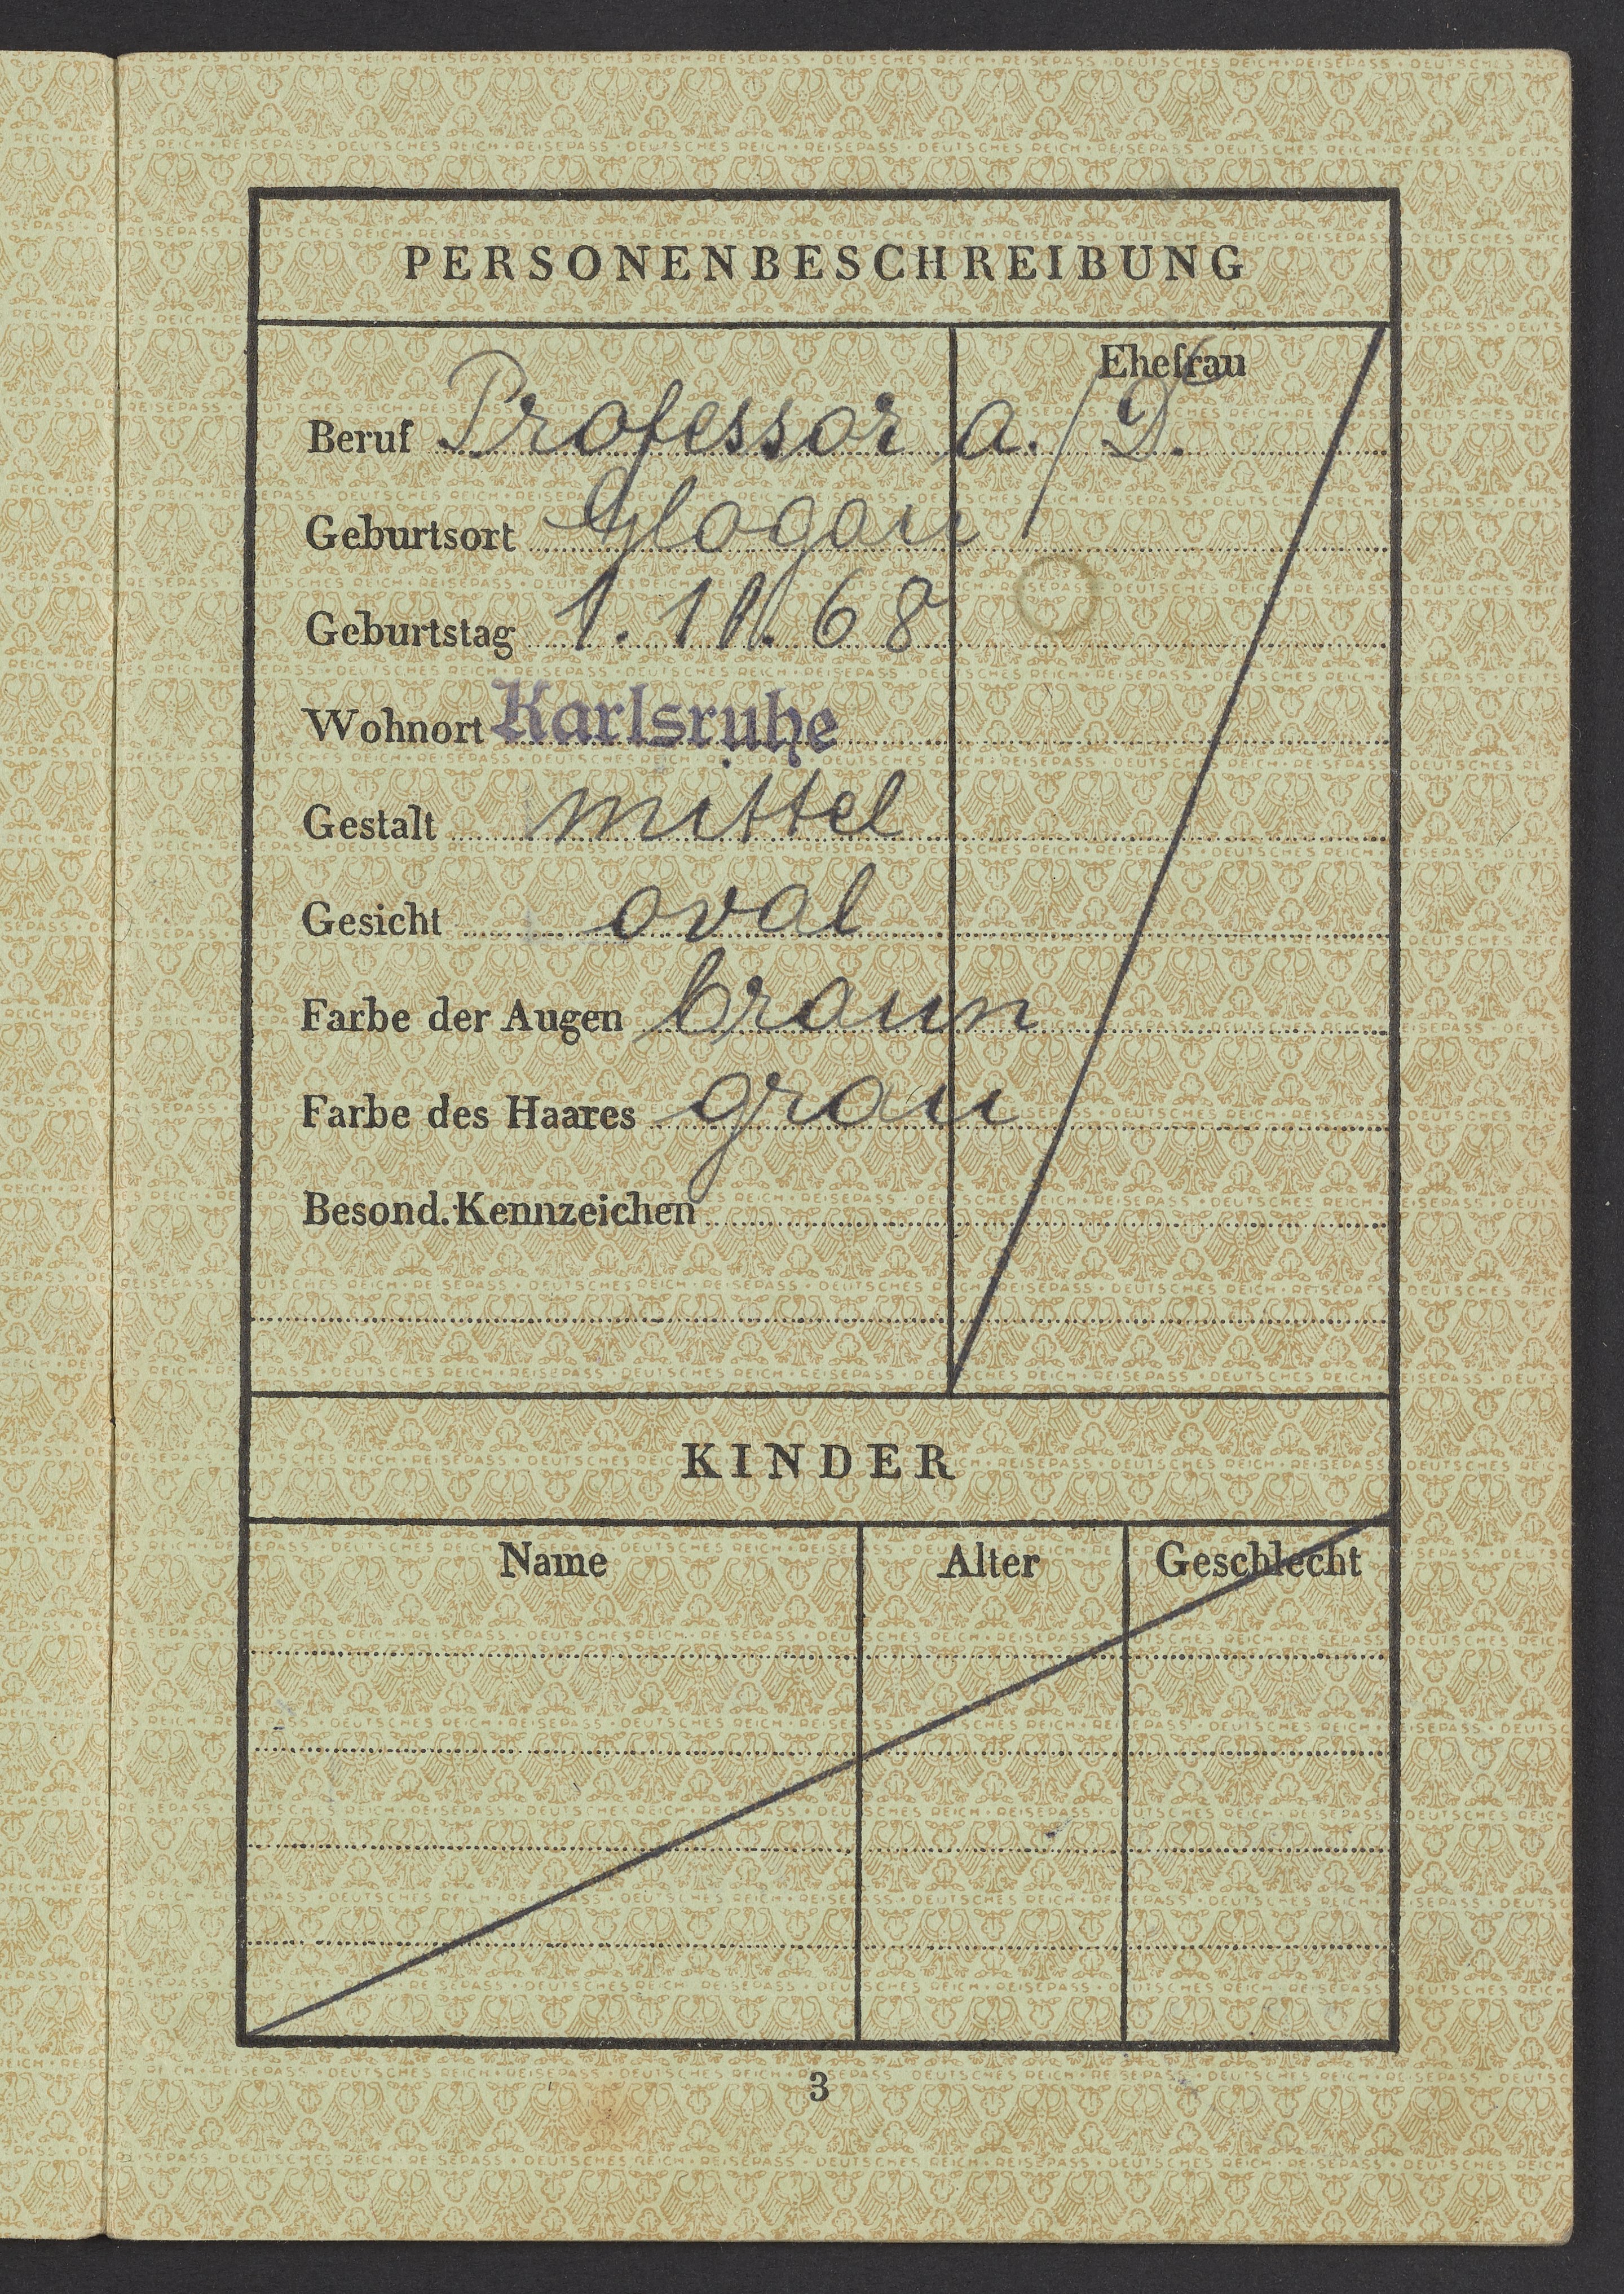 PERSONENBESCHREIBUNG
Ehefrau
Beruf Professor a. D.
Geburtsort Glogau
Geburtstag 1. 11. 68
Wohnort Karlsruhe
Gestalt mittel
Gesicht oval
Farbe der Augen braun
Farbe des Haares grau
Besond. Kennzeichen
KINDER
Name Alter Geschlecht
3